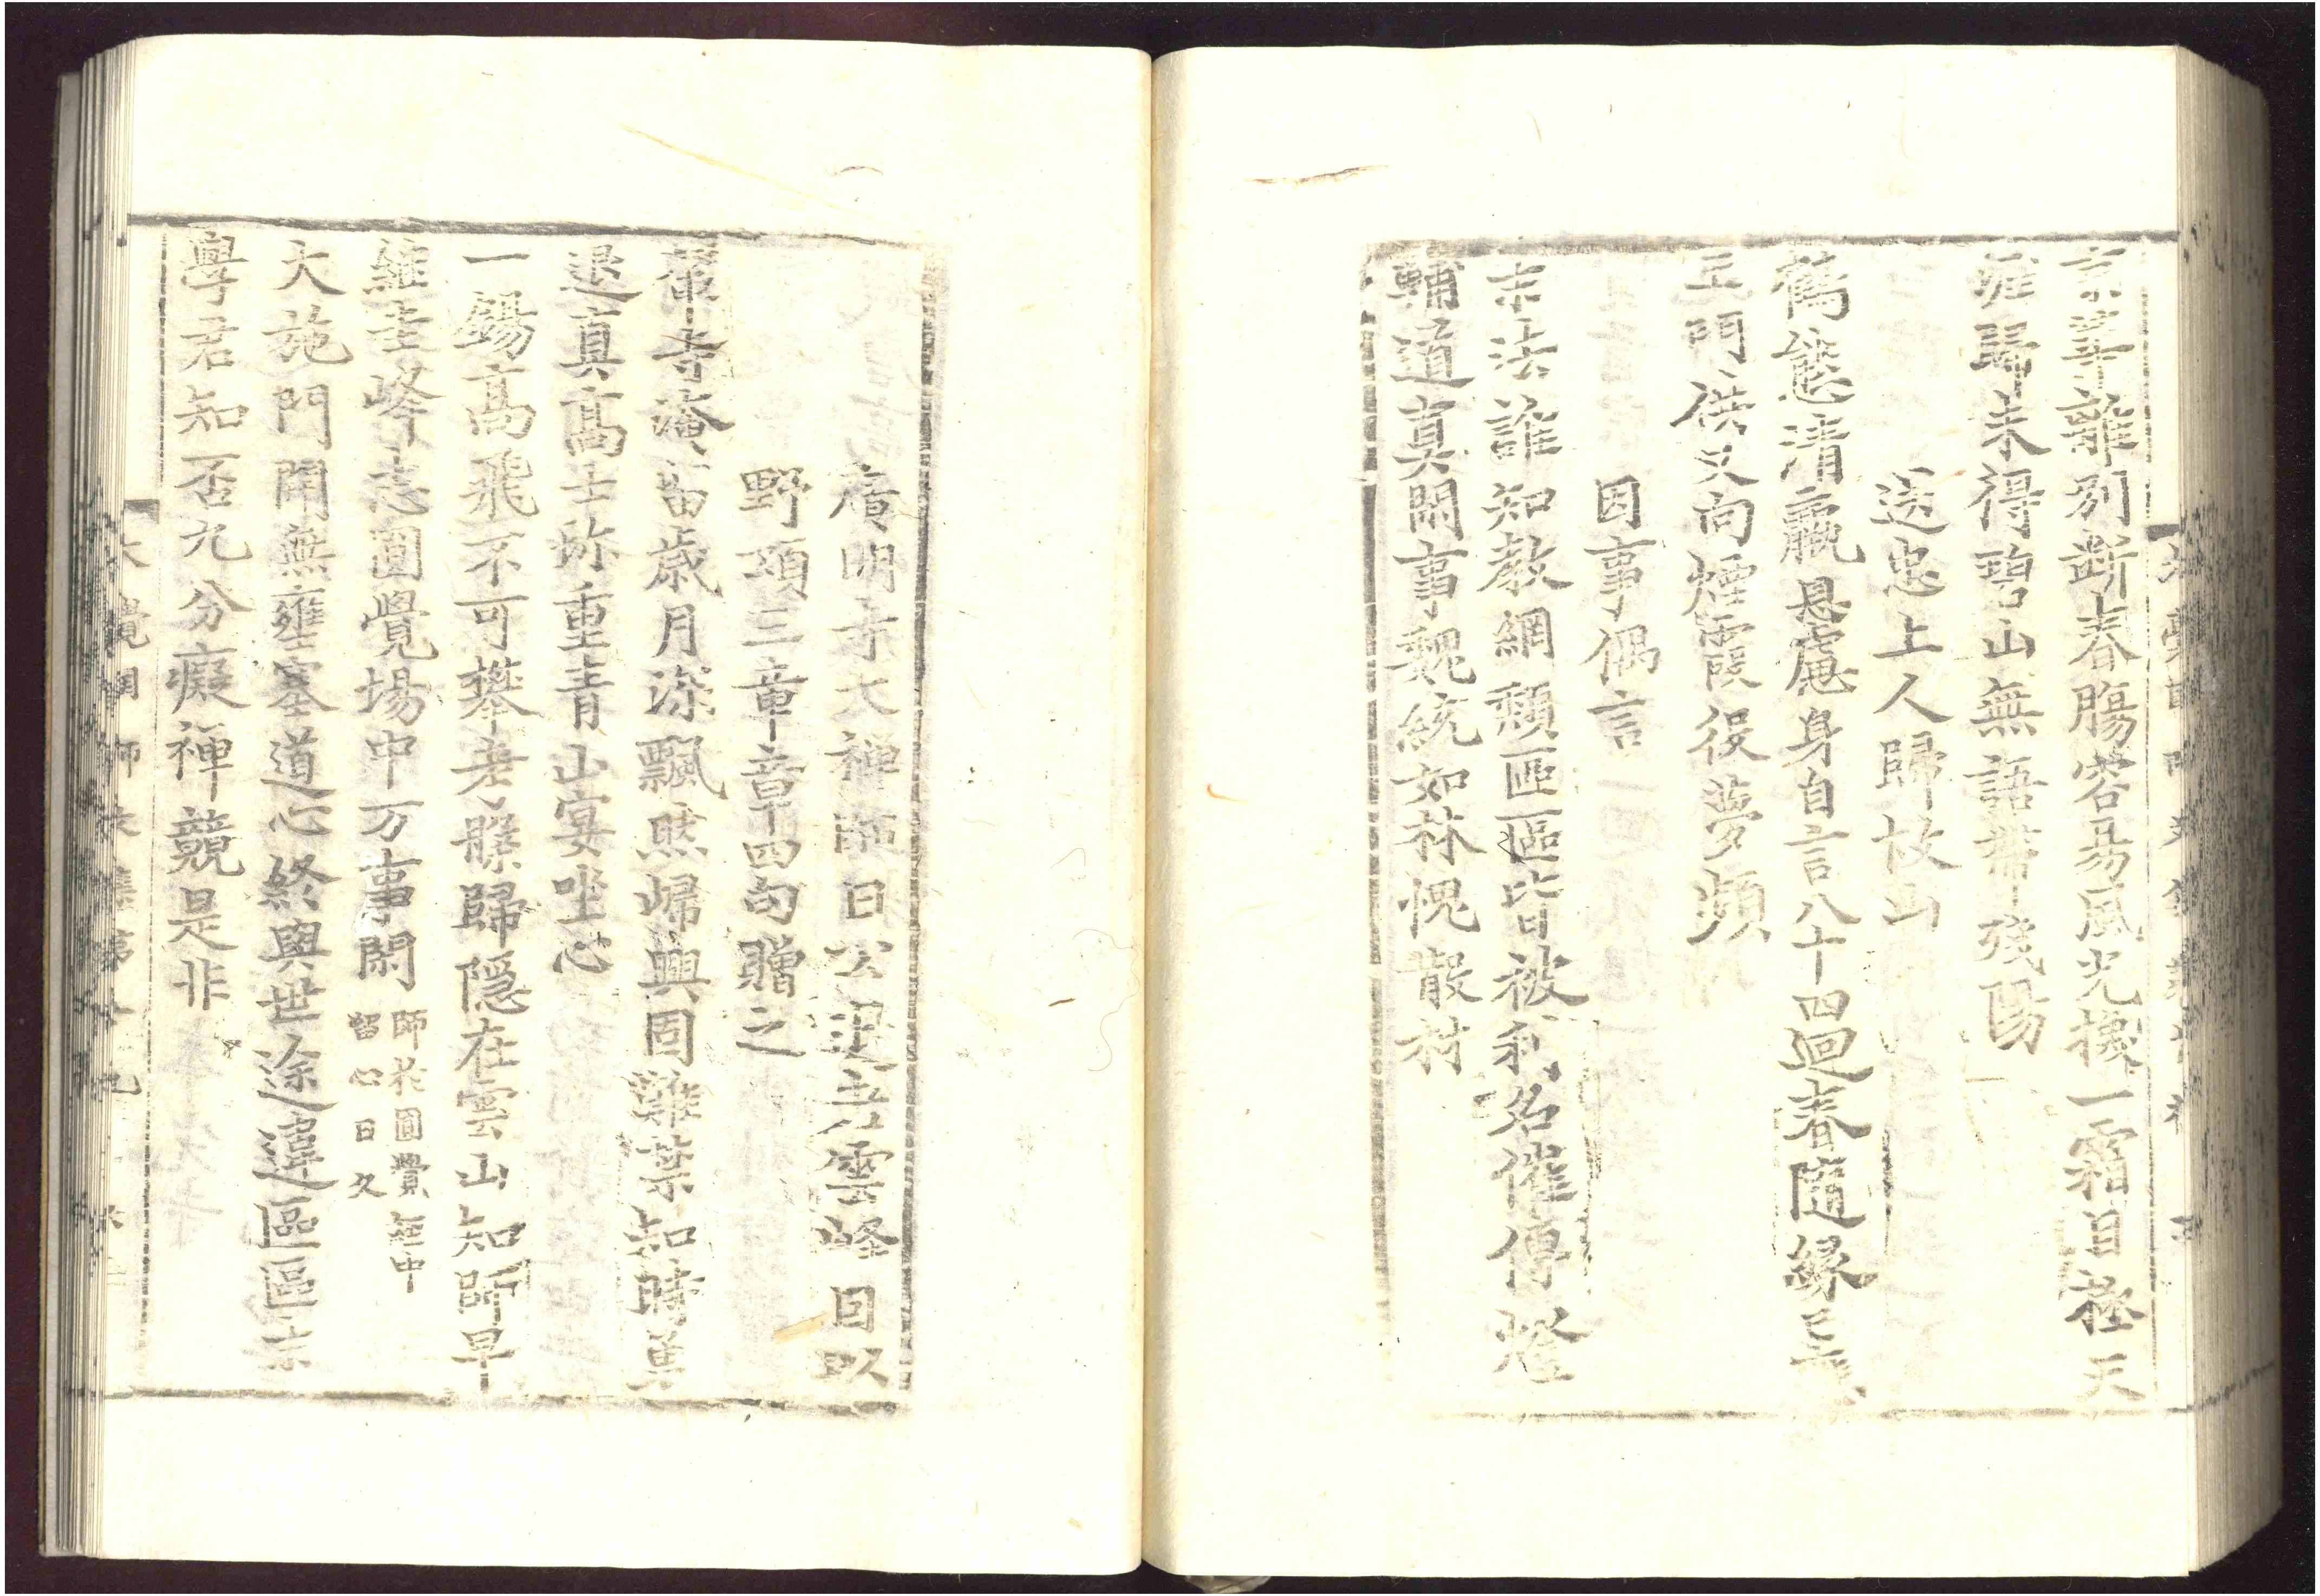 京華離別斷春腸容易風光換一霜目極天
涯歸未得碧山無語帶殘陽
送惠上人歸故山
舊態清羸
身自言八十四迴春隨緣
王門供只向煙霞役夢頻
因事偶言
末法誰知教網頹區區皆被利名催傳燈
輔道真閑事魏統如林愧散材
廣明寺大禪師日公退去雲峰因以
野頌三章章四句贈之
華寺淹留歲月深飄然歸興固難禁知時勇
退真高士珍重青山宴坐心
一錫高飛不可攀差縣歸隱在雲山知師早
繼圭峰志圓覺場中万事閑 師於圓覺經中
留心日久
大施門開無壅塞道心終與世途違區區末
學君知否九分癡禪競是非
大覺國師文集第十九